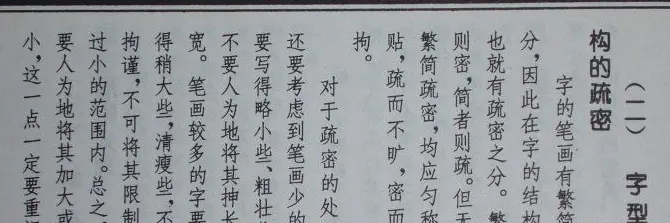 (二) 字型
构的疏密
字的笔画有繁简
分，因此在字的结构
也就有疏密之分。繁
则密，简者则疏。但无
繁简疏密，均应匀称
贴，疏而不旷，密而
拘。
对于疏密的处
还要考虑到笔画少的
要写得略小些、粗壮
不要人为地将其抻长
宽。笔画较多的字要
得稍大些，清瘦些，不
拘谨，不可将其限制
过小的范围内。总之，
要人为地将其加大或
小，这一点一定要重